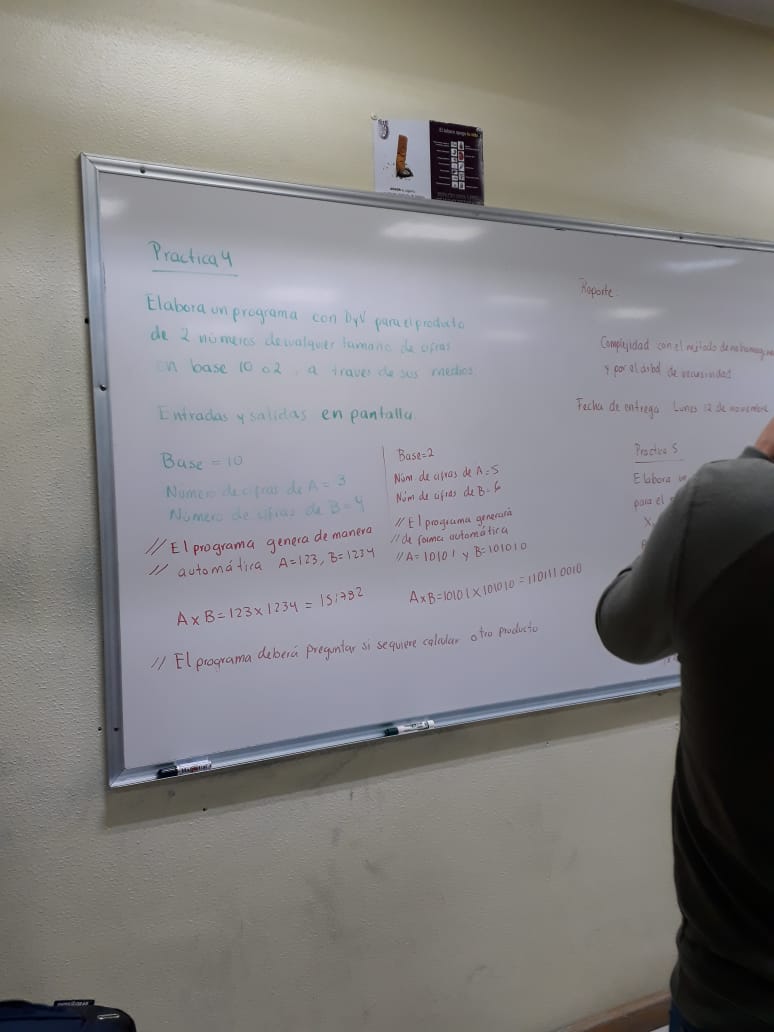 Practica 4
Elabora un programa con DyV para el producto
de 2 números de cualquier tamaño de cifras
en base 10 o 2, a traves de sus medios
Entradas y salidas en pantalla.
Base = 10
Número de cifras de A = 3
Número de cifras de B = 4
// El programa genera de manera
// automática A=123, B=1234
A x B = 123 x 1234 = 151782
Base=2
Núm de cifras de A=5
Núm de cifras de B=6
// El programa generará
// de forma automática
// A=10101 y B=101010
AxB=10101 x 101010 = 1101110010
// El programa deberá preguntar si se quiere calcular otro producto
Reporte.
Complejidad con el método de
y por el árbol de recursividad.
Fecha de entrega Lunes 12 de noviembre
Practica 5
Elabora un
para el
El tabaco apaga tu vida